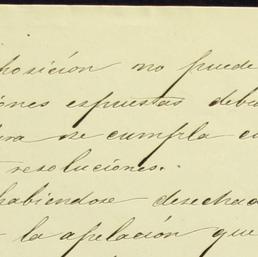 posición no puede
iones espuestas debe
ra se cumpla c
resoluciones.
habiendose desechado
la apelación que